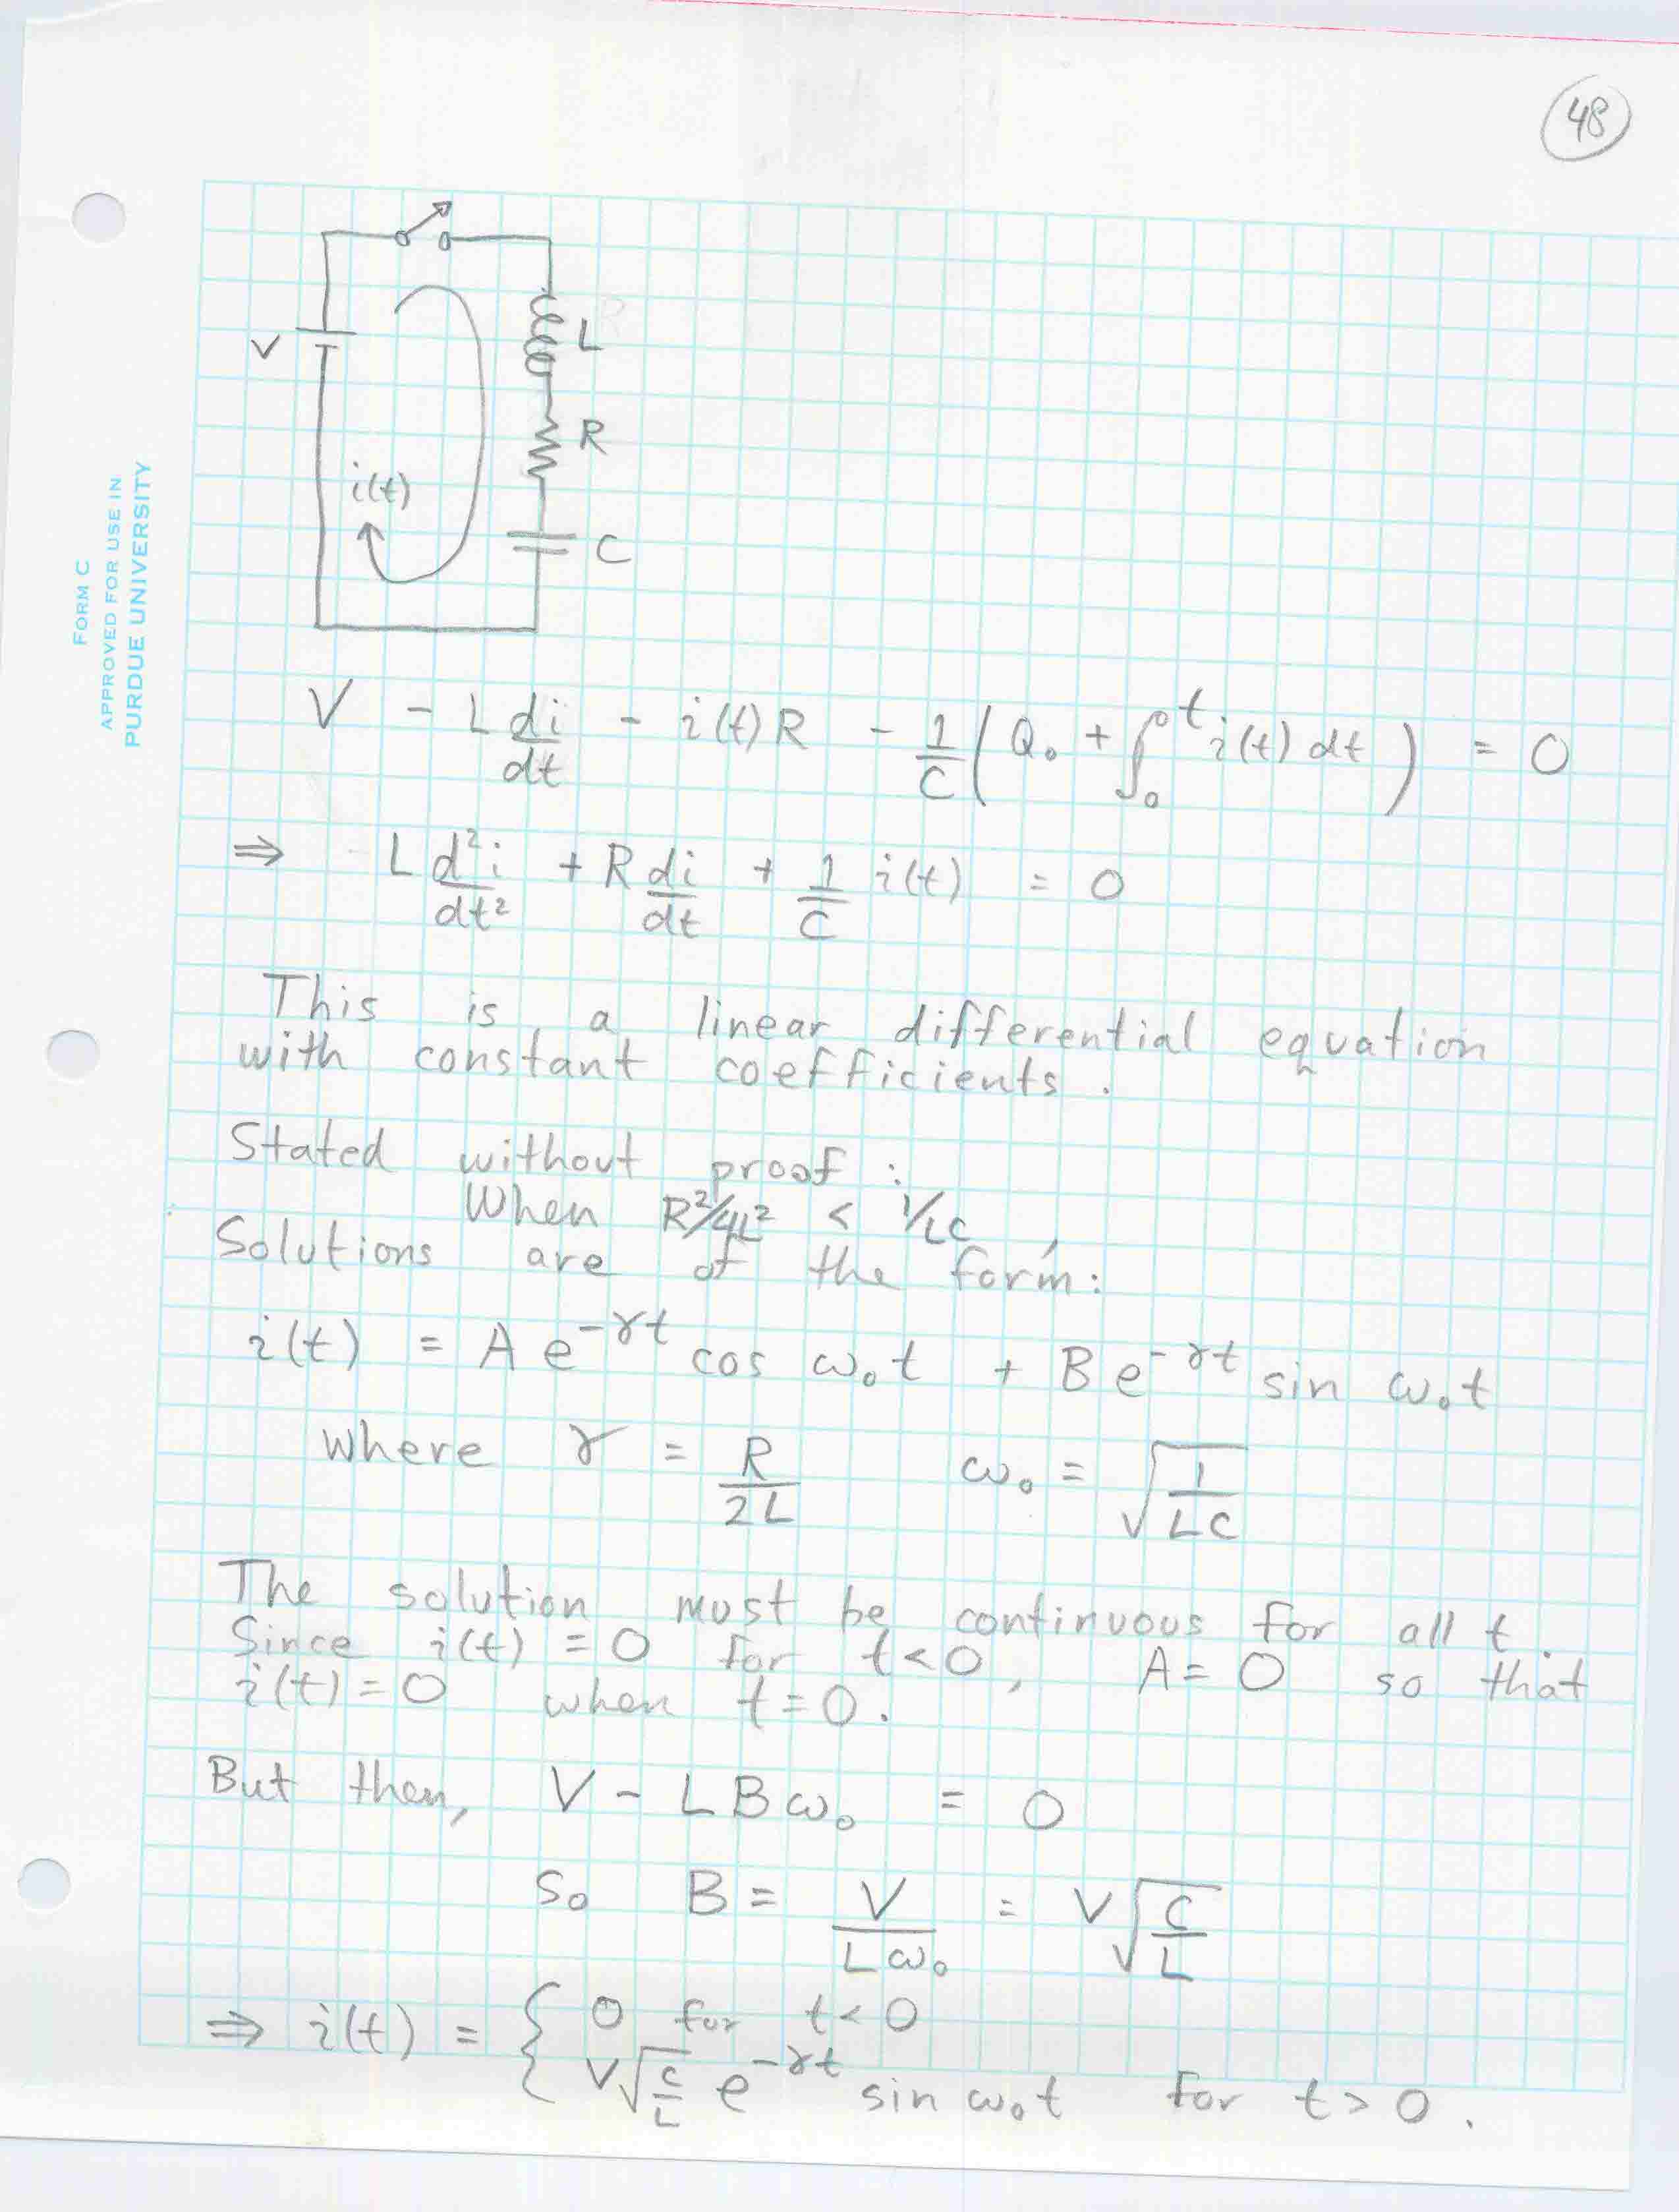 48
V
L
R
i(t)
C
FORM C
APPROVED FOR USE IN
PURDUE UNIVERSITY
V - L di/dt - i(t)R - 1/C (Q₀ + ∫₀ᵗ i(t) dt) = 0
⇒ L d²i/dt² + R di/dt + 1/C i(t) = 0
This is a linear differential equation
with constant coefficients.
Stated without proof:
When R²/4L² < 1/LC,
Solutions are of the form:
i(t) = A e^{-γt} cos ω₀t + B e^{-γt} sin ω₀t
where γ = R/2L ω₀ = √(1/LC)
The solution must be continuous for all t.
Since i(t) = 0 for t<0, A = 0 so that
i(t) = 0 when t = 0.
But then, V - L B ω₀ = 0
So B = V/Lω₀ = V√(C/L)
⇒ i(t) = { 0 for t < 0
V√(C/L) e^{-γt} sin ω₀t for t > 0.